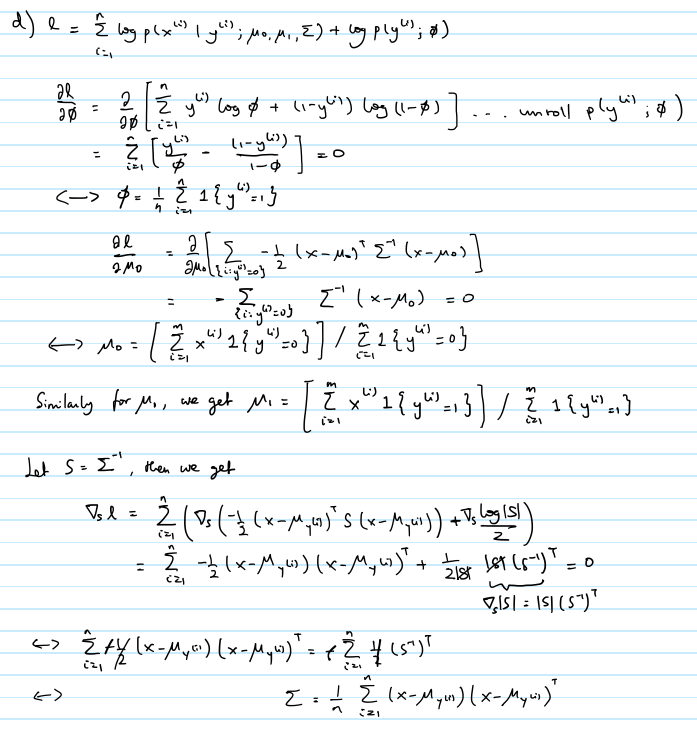 d) ℓ = Σ_{i=1}^{n} log p(x^{(i)} | y^{(i)}; μ₀, μ₁, Σ) + log p(y^{(i)}; φ)
∂ℓ/∂φ = ∂/∂φ [ Σ_{i=1}^{n} y^{(i)} log φ + (1-y^{(i)}) log (1-φ) ] ... unroll p(y^{(i)}; φ)
= Σ_{i=1}^{n} [ y^{(i)}/φ - (1-y^{(i)})/(1-φ) ] = 0
<-> φ = 1/n Σ_{i=1}^{n} 1{y^{(i)}=1}
∂ℓ/∂μ₀ = ∂/∂μ₀ [ Σ_{{i:y^{(i)}=0}} -1/2 (x-μ₀)^T Σ^{-1} (x-μ₀) ]
= - Σ_{{i:y^{(i)}=0}} Σ^{-1} (x-μ₀) = 0
<-> μ₀ = [ Σ_{i=1}^{m} x^{(i)} 1{y^{(i)}=0} ] / Σ_{i=1}^{m} 1{y^{(i)}=0}
Similarly for μ₁, we get μ₁ = [ Σ_{i=1}^{m} x^{(i)} 1{y^{(i)}=1} ] / Σ_{i=1}^{m} 1{y^{(i)}=1}
Let S = Σ^{-1}, then we get
∇_S ℓ = Σ_{i=1}^{n} ( ∇_S (-1/2 (x-μ_{y^{(i)}})^T S (x-μ_{y^{(i)}})) + ∇_S log|S|/2 )
= Σ_{i=1}^{n} -1/2 (x-μ_{y^{(i)}}) (x-μ_{y^{(i)}})^T + 1/(2|S|) |S| (S^{-1})^T = 0
∇_S|S| = |S| (S^{-1})^T
<-> Σ_{i=1}^{n} +1/2 (x-μ_{y^{(i)}}) (x-μ_{y^{(i)}})^T = + Σ_{i=1}^{n} 1/2 (S^{-1})^T
<-> Σ = 1/n Σ_{i=1}^{n} (x-μ_{y^{(i)}}) (x-μ_{y^{(i)}})^T